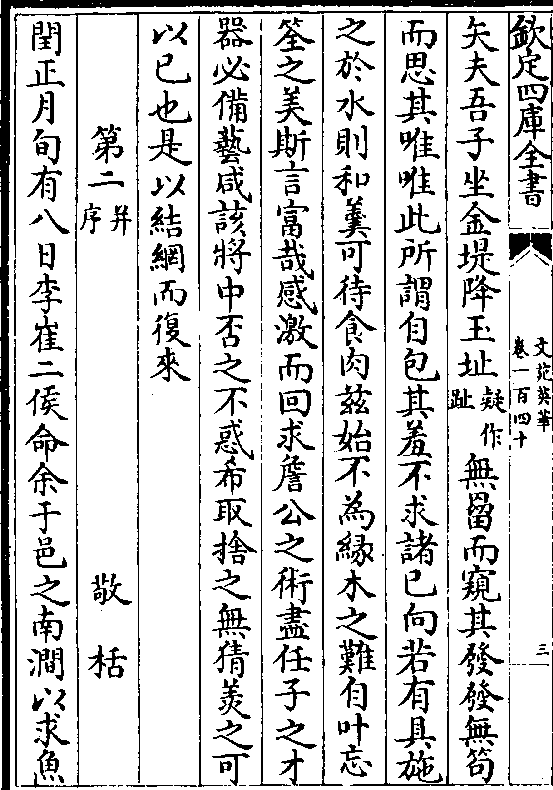 欽定四庫全書
文苑英華
卷一百四十
三
矢夫吾子坐金堤降玉址疑作趾無罶而窺其發發無笱
而思其唯唯此所謂自包其羞不求諸已向若有具施
之於水則和羹可待食肉茲始不為緣木之難自叶忘
筌之美斯言富哉感激而回求詹公之術盡任子之才
器必備藝咸該將中否之不惑希取捨之無猜羨之可
以已也是以結網而復來
第二并序
敬括
閏正月旬有八日李崔二侯命余于邑之南澗以求魚